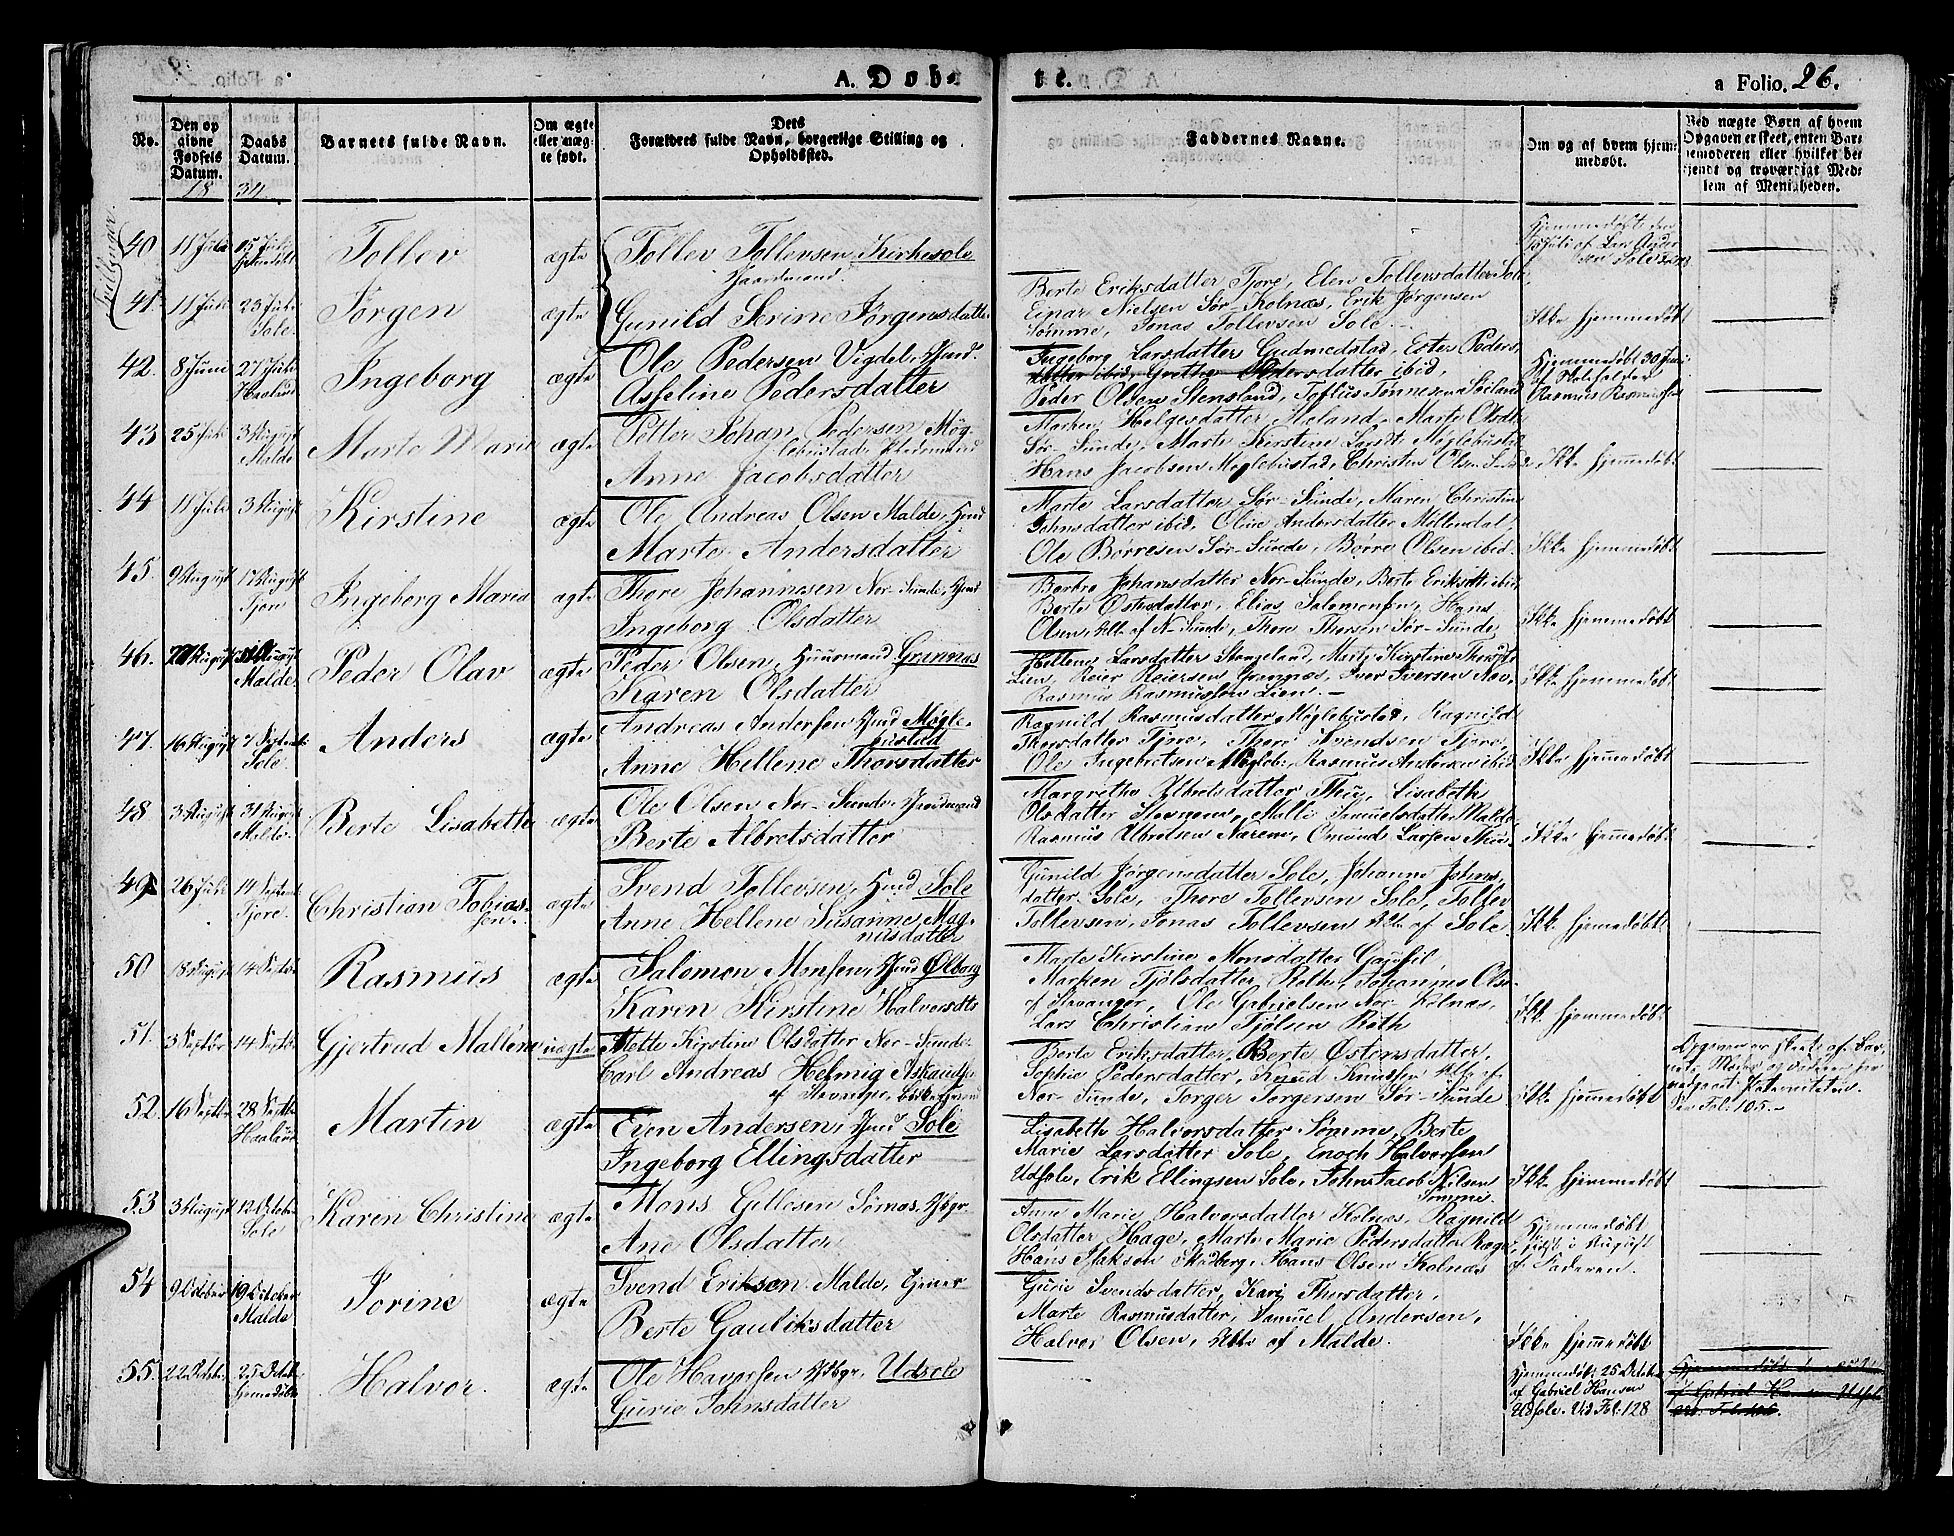 A. Døb-
te.
a Folio. 26.
No.
Den op
givne
Fødsels
Datum.
Daabs
Datum.
Barnets fulde Navn.
Om ægte
eller uæg-
te født.
Dets
Forældres fulde Navn, borgerlige Stilling og
Opholdssted.
Faddernes Navne.
Om og af hvem hjem-
medøbt.
Ved uægte Børn af hvem
Opgaven er skeet, enten Bar-
nemoderen eller hvilket be-
kjendt og troværdigt Med-
lem af Menigheden.
18 34
Tvillinger.
40 11 Juli 15 Juli Tollev ægte Tollev Tollevsen Kirkesole
Gaardmand
Hjemmedøbt den
15 Juli af Lars Ander
sen Sole
41. 11 Juli 23 Juli
Sole Jørgen ægte Gunild Serine Jørgensdatter
Berte Eriksdatter Tjore, Elen Tollevsdatter Sole,
Einar Nielsen Sør-Kolnæs, Erik Jørgensen
Sømme, Jonas Tollevsen Sole.
Ikke hjemmedøbt
42. 8 Juni 27 Juli
Haaland Ingeborg ægte Ole Pedersen Vigdel,
Asseline Pedersdatter
Ingeborg Larsdatter Gudmedstad, Ester Peders-
datter ibid, Grethe Pedersdatter ibid,
Peder Olsen Stensland, Tollius Tønnesen
Hjemmedøbt 30 Juni
af
Rasmus Rasmussen
43 25 Juli 3 August
Malde Marte Marie ægte Petter Johan Pedersen Møg-
lebustad,
Anne Jacobsdatter
Marken Helgesdatter Meland, Marte Olsdtr
Sør-Sunde, Marte Kirstine Larsdt Møglebustad
Hans Jacobsen Møglebustad, Christen Olsen
Ikke hjemmedøbt
44 11 Juli 3 August Kirstine ægte Ole Andreas Olsen Malde,
Marte Andersdatter
Marte Larsdatter Sør-Sunde, Maren Christine
Johnsdatter ibid, Oline Andersdatter Mellendal,
Ole Børresen Sør-Sunde, Børre Olsen ibid.
Ikke hjemmedøbt
45. 9 August 17 August
Tjore Ingeborg Maria ægte Thore Johannesen Nor-Sunde,
Ingeborg Olsdatter
Berbro Johansdatter Nor-Sunde, Berte Eriksdtr ibid,
Berte Østensdatter, Elias Salomonsen, Hans
Olsen, Alle af N-Sunde, Thore Thorsen Sør-Sunde
Ikke hjemmedøbt
46. August 31 August
Malde Peder Olav ægte Peder Olsen, Huusmand Grannæs
Karen Olsdatter
Hellene Larsdatter Stangeland, Marte Kirstine Thorsdtr
Lien, Reier Reiersen Grannæs, Iver Iversen
Rasmus Rasmussen Lien.
Ikke hjemmedøbt
47. 16 August 7 Septemb
Sole. Anders ægte Andreas Andersen Møgle-
bustad
Anne Hellene Thorsdatter
Ragnild Rasmusdatter Møglebustad, Ragnild
Thorsdatter Tjore, Thore Svendsen Tjore,
Ole Ingebretsen Mögleb: Rasmus Andersen ibid.
Ikke hjemmedøbt
48 3 August 31 August
Malde. Berte Lisabethe ægte Ole Olsen Nor-Sunde,
Berte Albretsdatter
Margrethe Albretsdatter Thu, Lisabeth
Olsdatter Malli Samuelsdatter Malde
Rasmus Albretsen Omund Larsen Thu,
Ikke hjemmedøbt
49 26 Juli 14 Septemb
Tjore. Christian Tobias-
sen. ægte Svend Tollevsen, Sole
Anne Hellene Susanne Mag-
nusdatter
Gunild Jørgensdatter Sole, Johanne Johns-
datter Sole, Thore Tollevsen Sole, Tollev
Tollevsen, Jonas Tollevsen Alle af Sole.
Ikke hjemmedøbt
50 18 August 14 Septbr Rasmus ægte Salomon Monsen, Ølborg
Karen Kirstine Halvorsdtr
Marte Kirstine Monsdatter
Marken Tjølsdatter Roth, Johannes Olsen
af Stavanger, Ole Gabrielsen Nor-Kolnæs,
Lars Christian Tjølsen Roth
Ikke hjemmedøbt
51. 3 Septbr 14 Septbr Gjertrud Mallene uægte Mette Kirstine Olsdatter Nor-Sunde.
Carl Andreas Helmig
af Stavanger,
Berte Eriksdatter, Berte Østensdatter,
Sophie Pedersdatter, Knud Knudsen Alle af
Nor-Sunde, Torger Torgersen Sør-Sunde
Ikke hjemmedøbt
Opgaven er skeet af Bar-
nets Moder og Faderen har
vedgaaet Paterniteten.
See Fol: 105.
52. 16 Septbr 28 Septbr
Haaland Martin ægte Even Andersen, Sole
Ingeborg Ellingsdatter
Lisabeth Halvorsdatter Sømme, Berte
Marie Larsdatter Sole, Enoch Halvorsen
Udsole, Erik Ellingsen Sole, John Jacob Nilsen
Sømme.
Ikke hjemmedøbt
53 3 August 12 October
Sole Karen Christine ægte Mons Sørnæs,
Ane Olsdatter
Anne Marie Halvorsdatter Kolnæs, Ragnild
Olsdatter Hage, Marte Marie Pedersdatter Ræge,
Hans Isaksen Skadberg, Hans Olsen Kolnæs
Hjemmedøbt
i August
af Faderen.
54 9 October 19 October
Malde Serine ægte Svend Eriksen Malde,
Berte Gauliksdatter
Gurie Svendsdatter, Kari Thorsdatter,
Marte Rasmusdatter, Samuel Andersen,
Halvor Olsen, Alle af Malde.
Ikke hjemmedøbt
55. 22 Octbr. 25 Octbr
hjemmedøbt Halvor. ægte Ole Havorsen Udsole
Gurie Johnsdatter
Hjemmedøbt 25 October
af Gabriel Hansen
Udsole. Vid Fol. 128